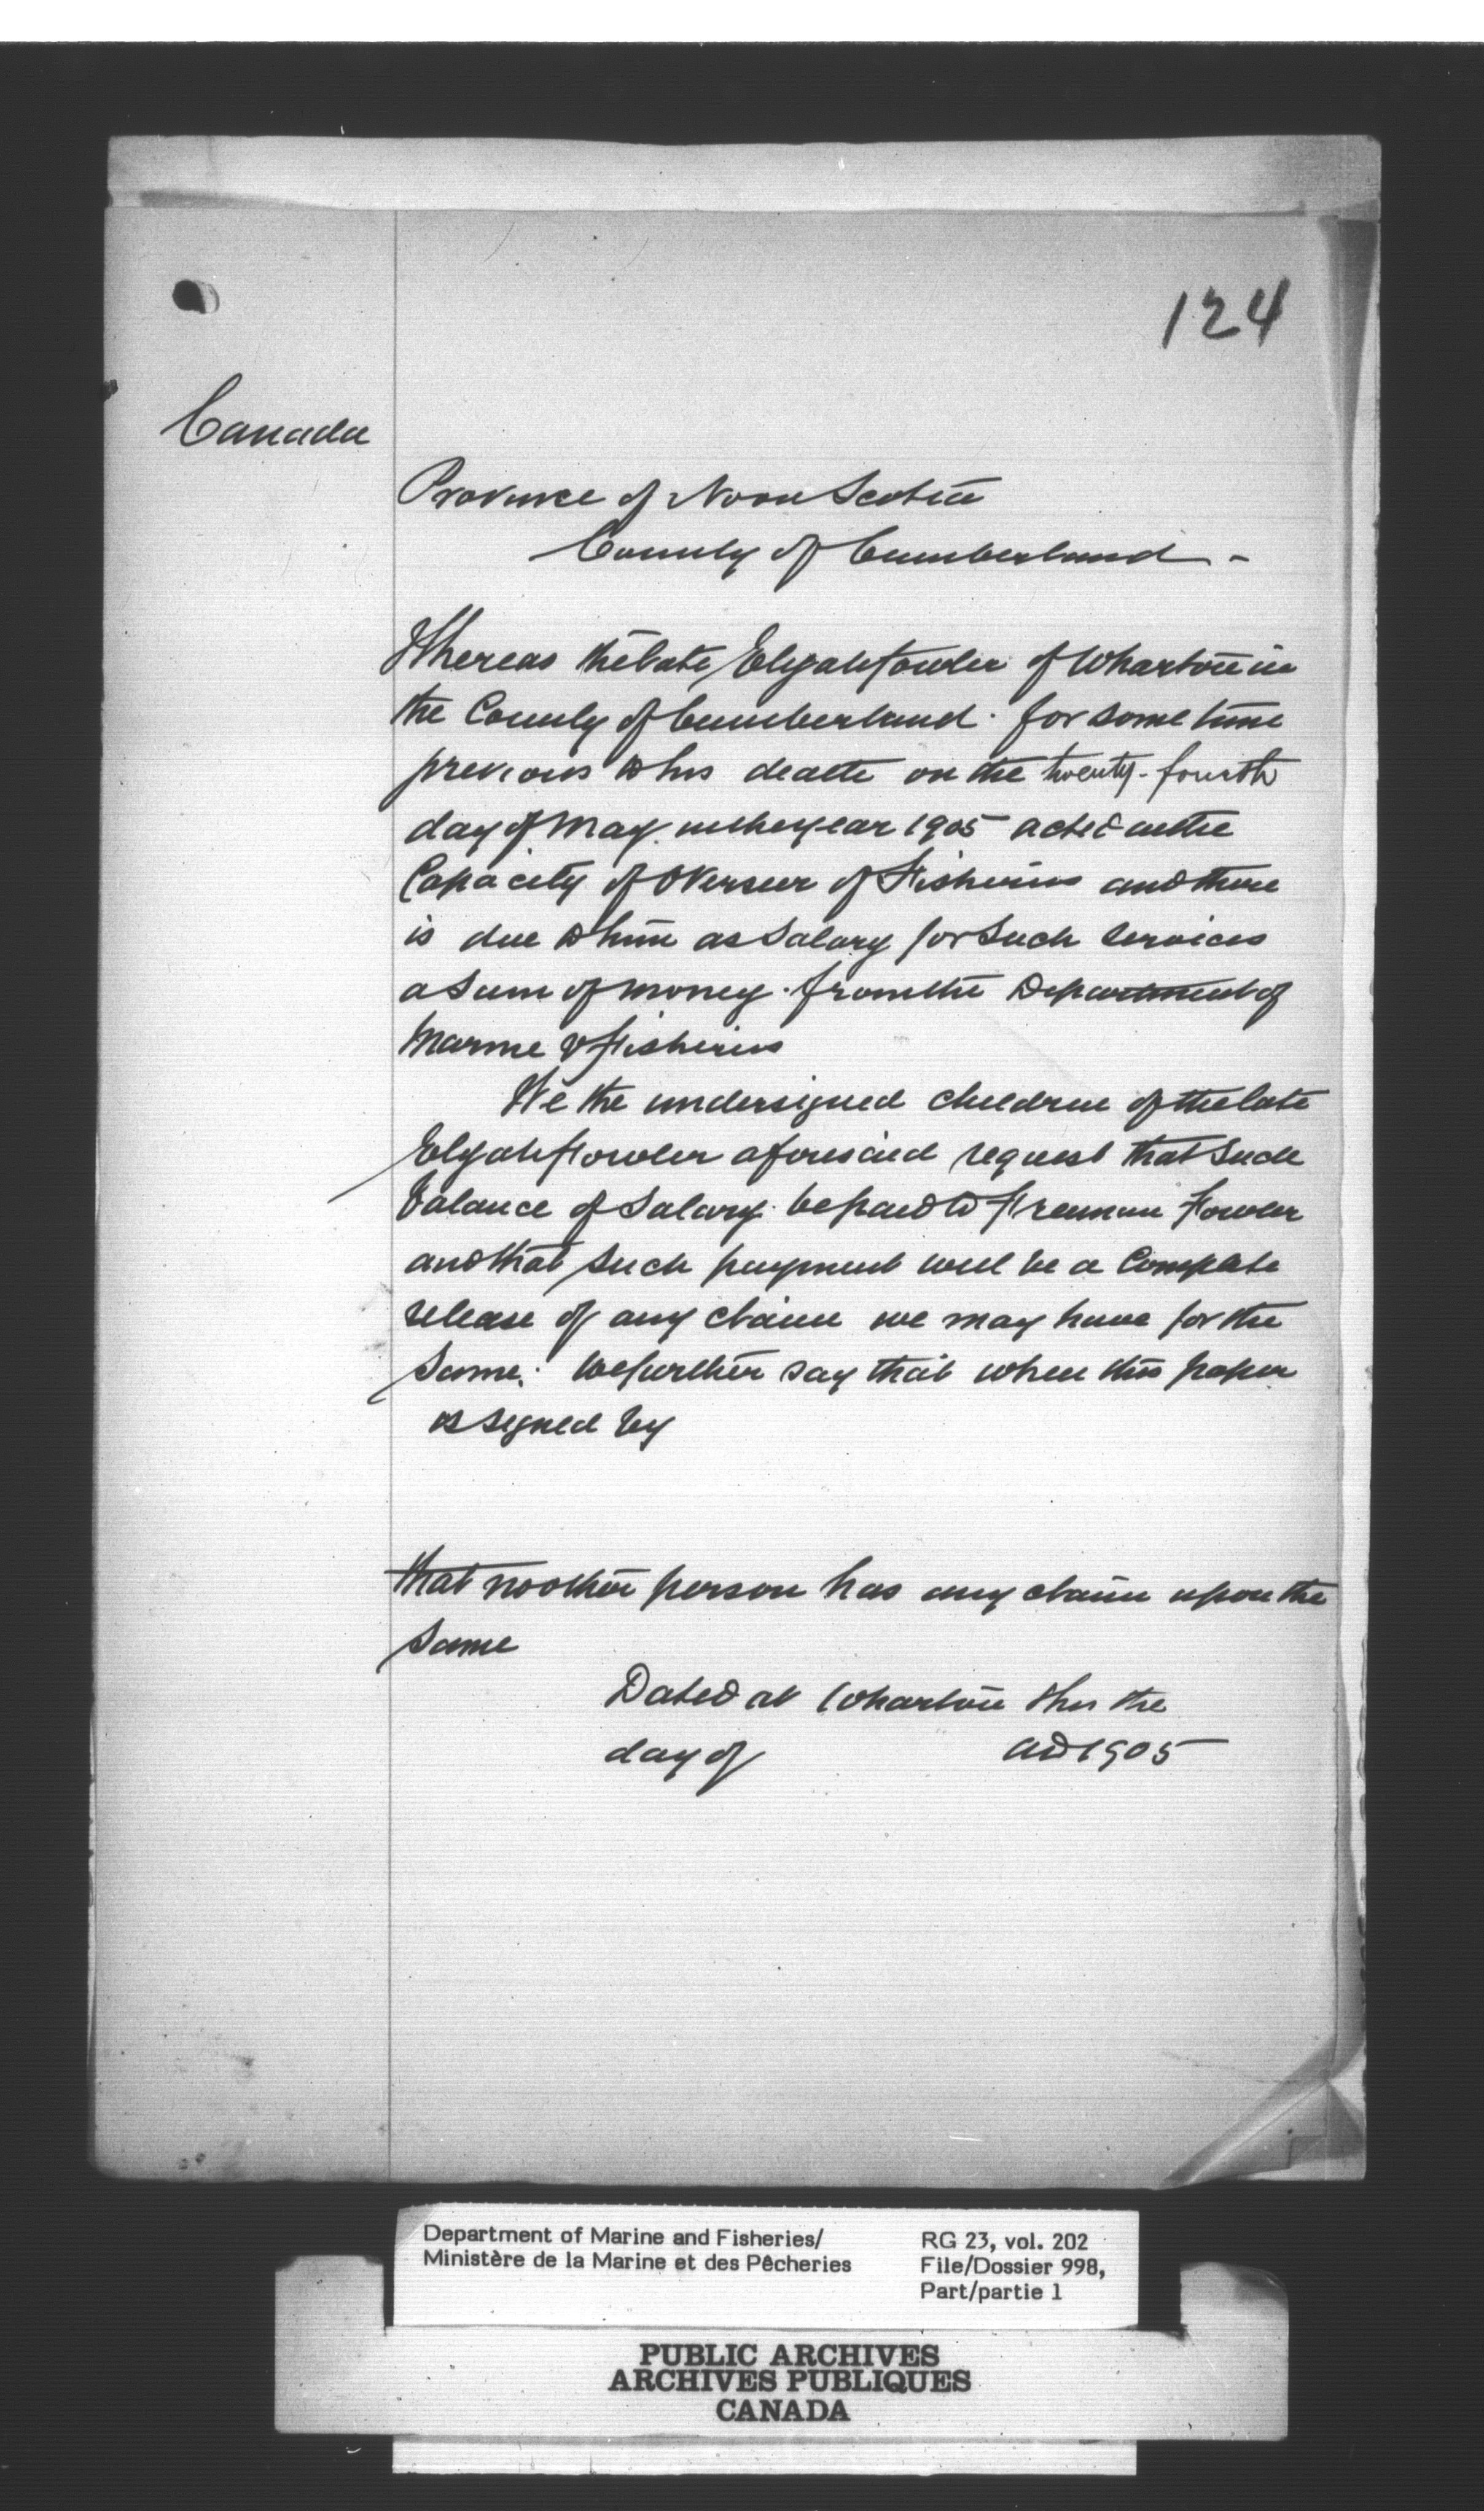 124
Canada
Province of Nova Scotia
County of Cumberland -
Whereas the late Elijah Fowler of Wharton in
the County of Cumberland. for some time
previous to his death on the twenty-fourth
day of May. in the year 1905 acted in the
Capacity of Overseer of Fisheries and there
is due to him as Salary for Such Services
a Sum of money. from the Department of
Marine & Fisheries
We the undersigned children of the late
Elijah Fowler aforesaid request that Such
balance of Salary. be paid to Freeman Fowler
and that Such payment will be a Complete
release of any claim we may have for the
Same. We further say that when this paper
is signed by
that no other person has any claim upon the
Same
Dated at Wharton this the
day of AD 1905
Department of Marine and Fisheries/
Ministère de la Marine et des Pêcheries
RG 23, vol. 202
File/Dossier 998,
Part/partie 1
PUBLIC ARCHIVES
ARCHIVES PUBLIQUES
CANADA